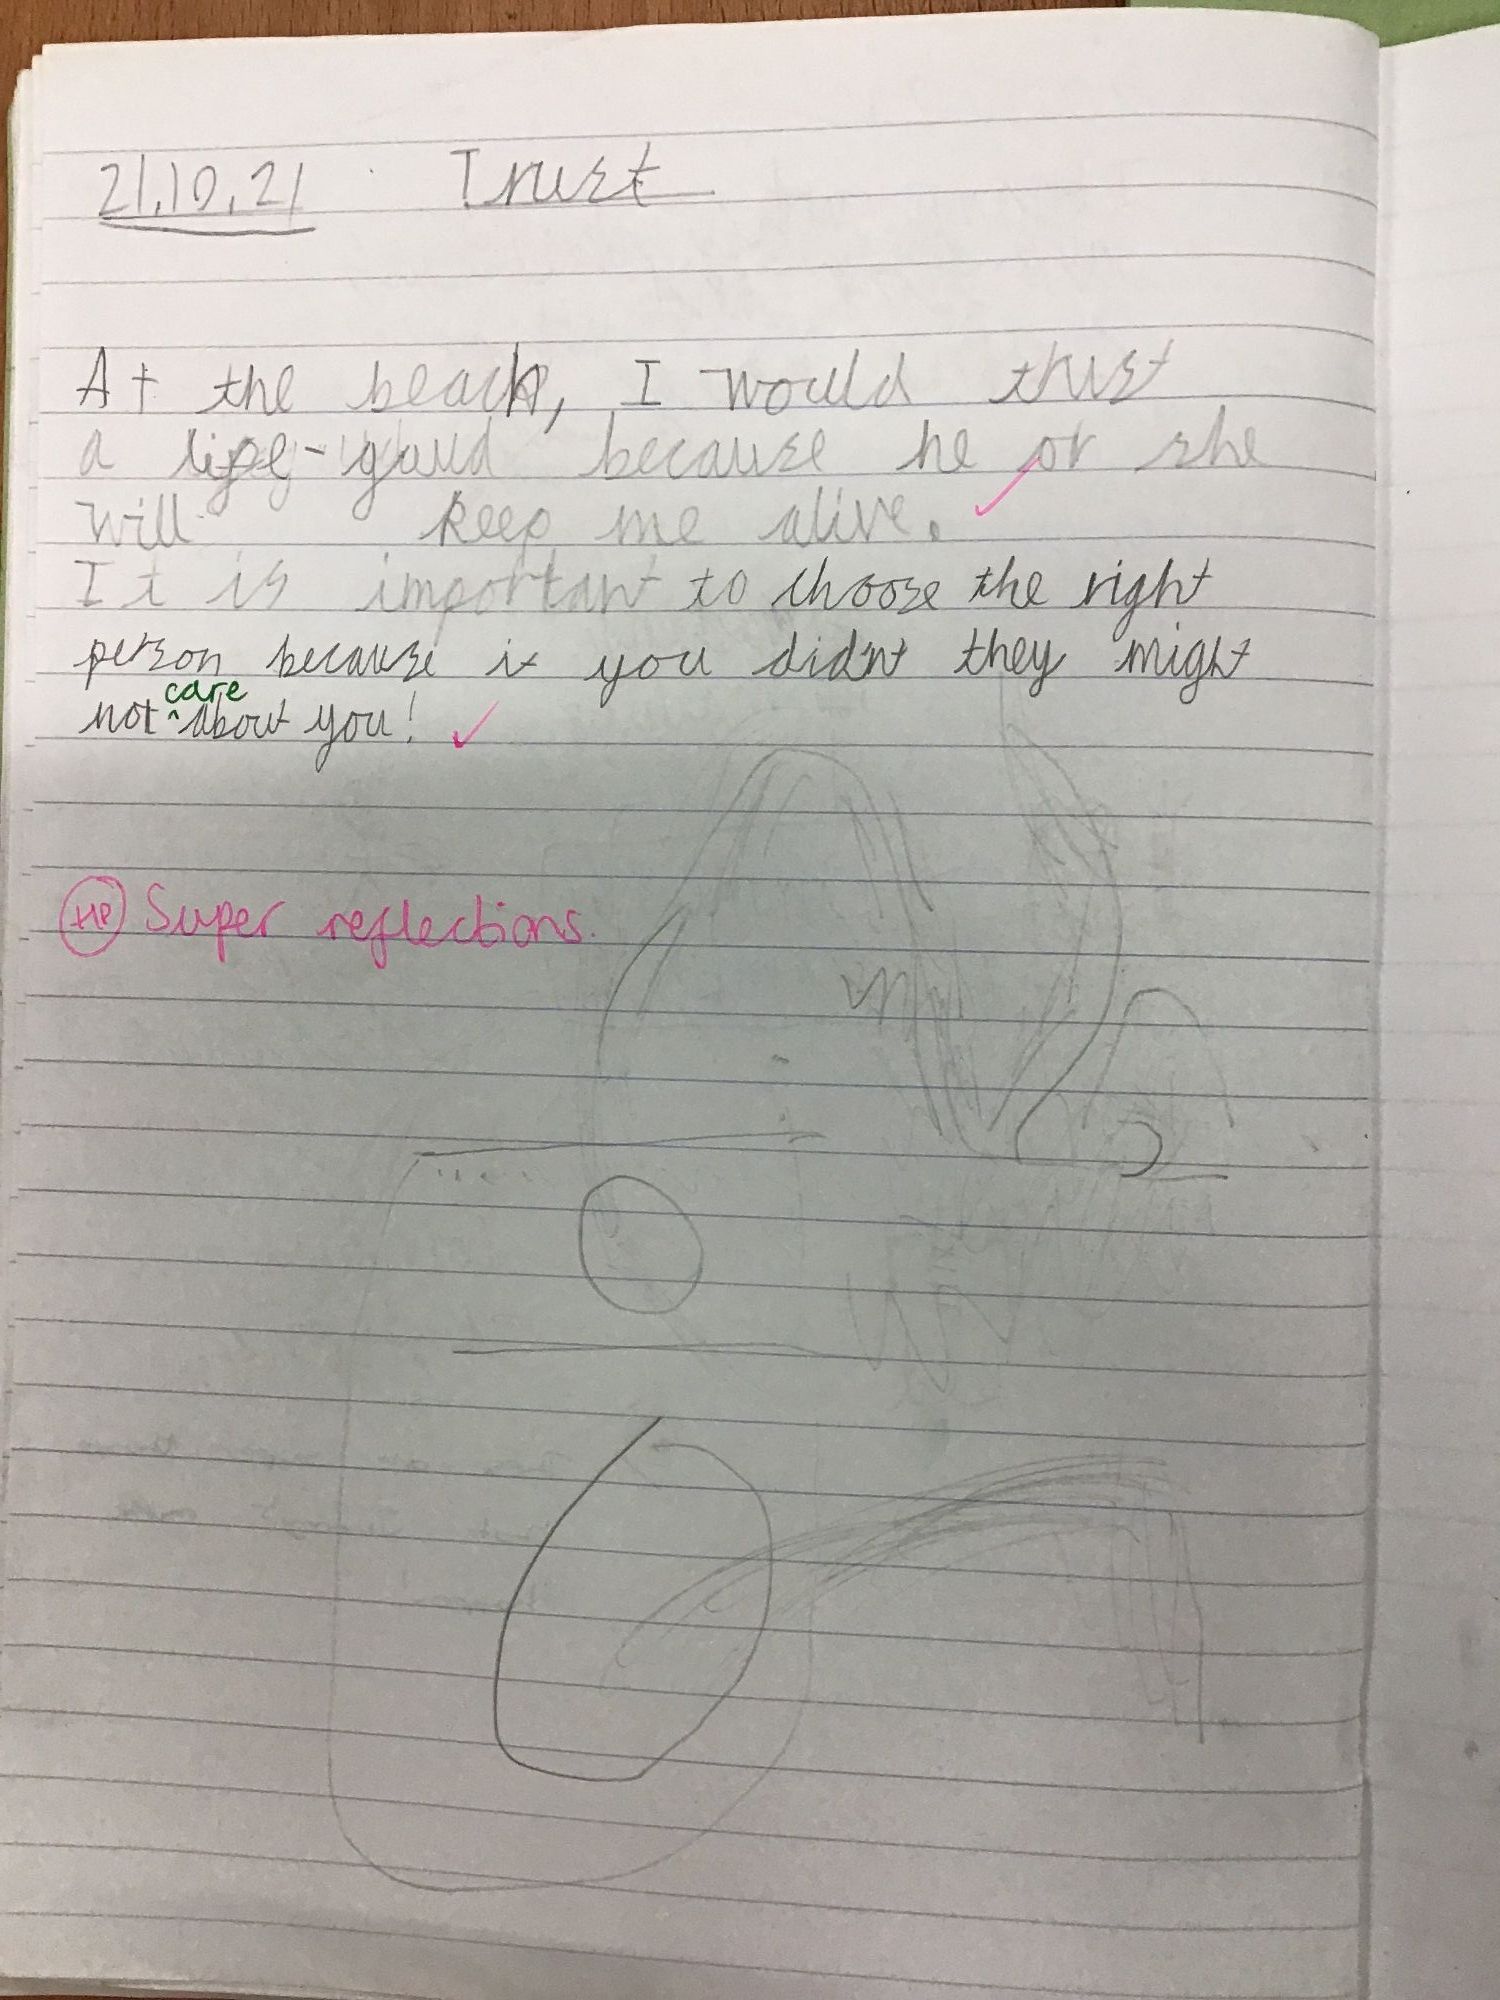 21.10.21 Trust
At the beach, I would trust
a life-gaurd because he or she
will keep me alive.
It is important to choose the right
person because if you didn't they might
not care about you!
HP Super reflections.